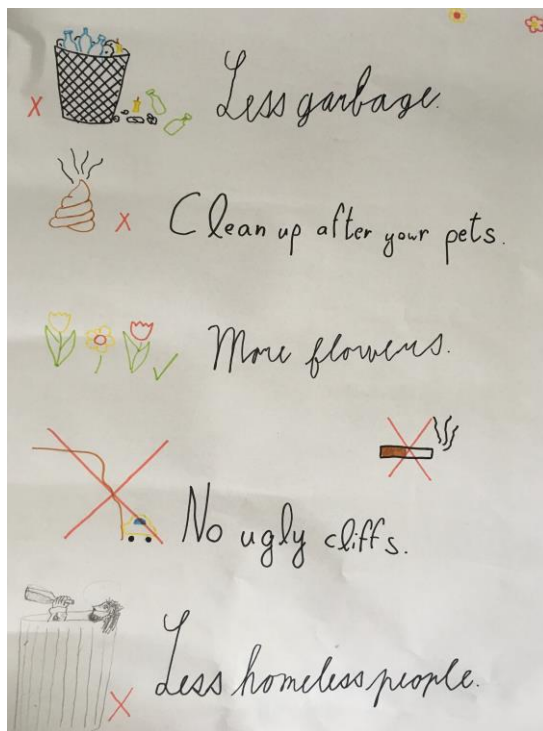 Less garbage.
Clean up after your pets.
More flowers.
No ugly cliffs.
Less homeless people.